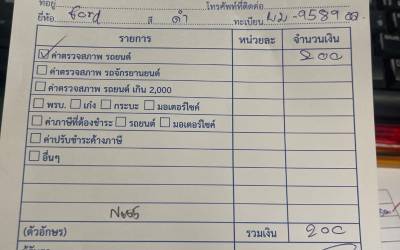 ที่อยู่ โทรศัพท์ที่ติดต่อ
ยี่ห้อ Ford สี ดำ ทะเบียน ผม-9589
รายการ หน่วยละ จำนวนเงิน
ค่าตรวจสภาพ รถยนต์ 200
ค่าตรวจสภาพ รถจักรยานยนต์
ค่าตรวจสภาพ รถยนต์ เกิน 2,000
พรบ. เก๋ง กระบะ มอเตอร์ไซค์
ค่าภาษีที่ต้องชำระ รถยนต์ มอเตอร์ไซค์
ค่าปรับชำระค้างภาษี
อื่นๆ
(ตัวอักษร) รวมเงิน 200